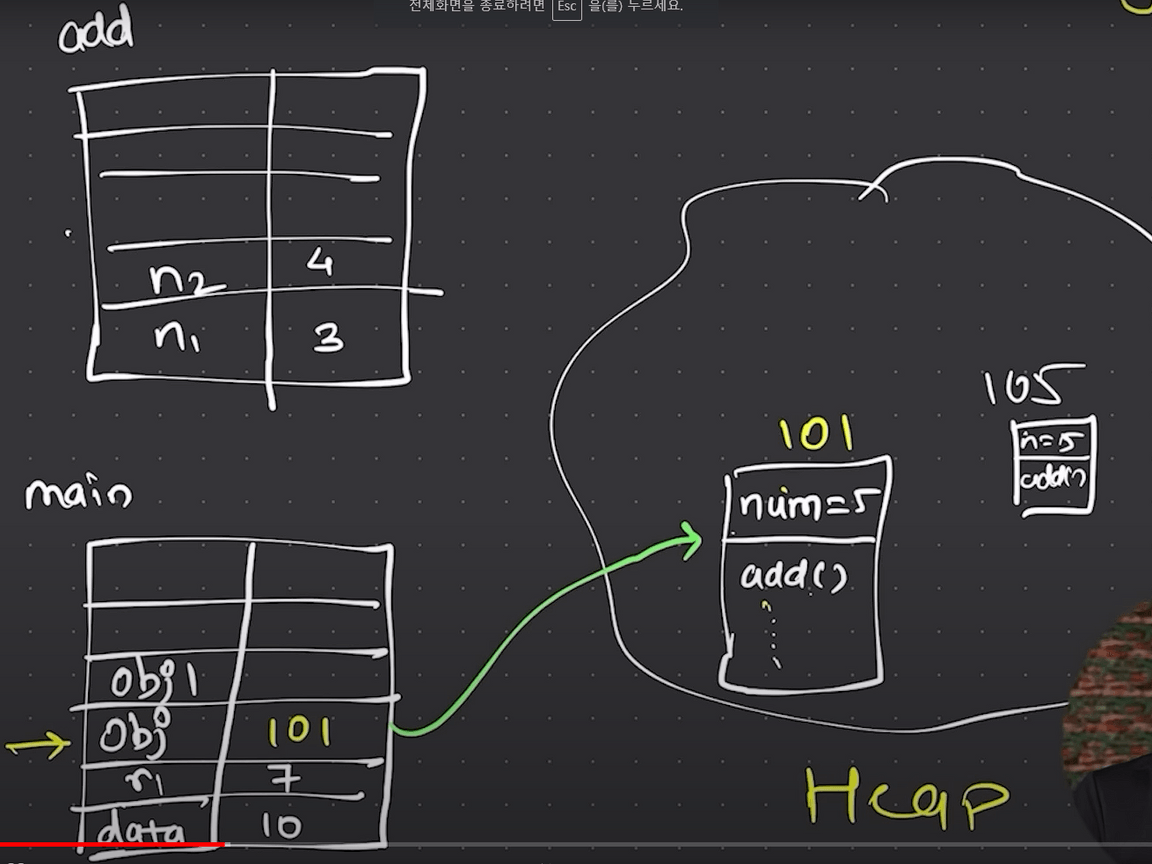 전체화면을 종료하려면 Esc 을(를) 누르세요.
add
n2 4
n1 3
main
obj1
obj 101
n1 7
data 10
101
num=5
add()
105
n=5
add()
Heap